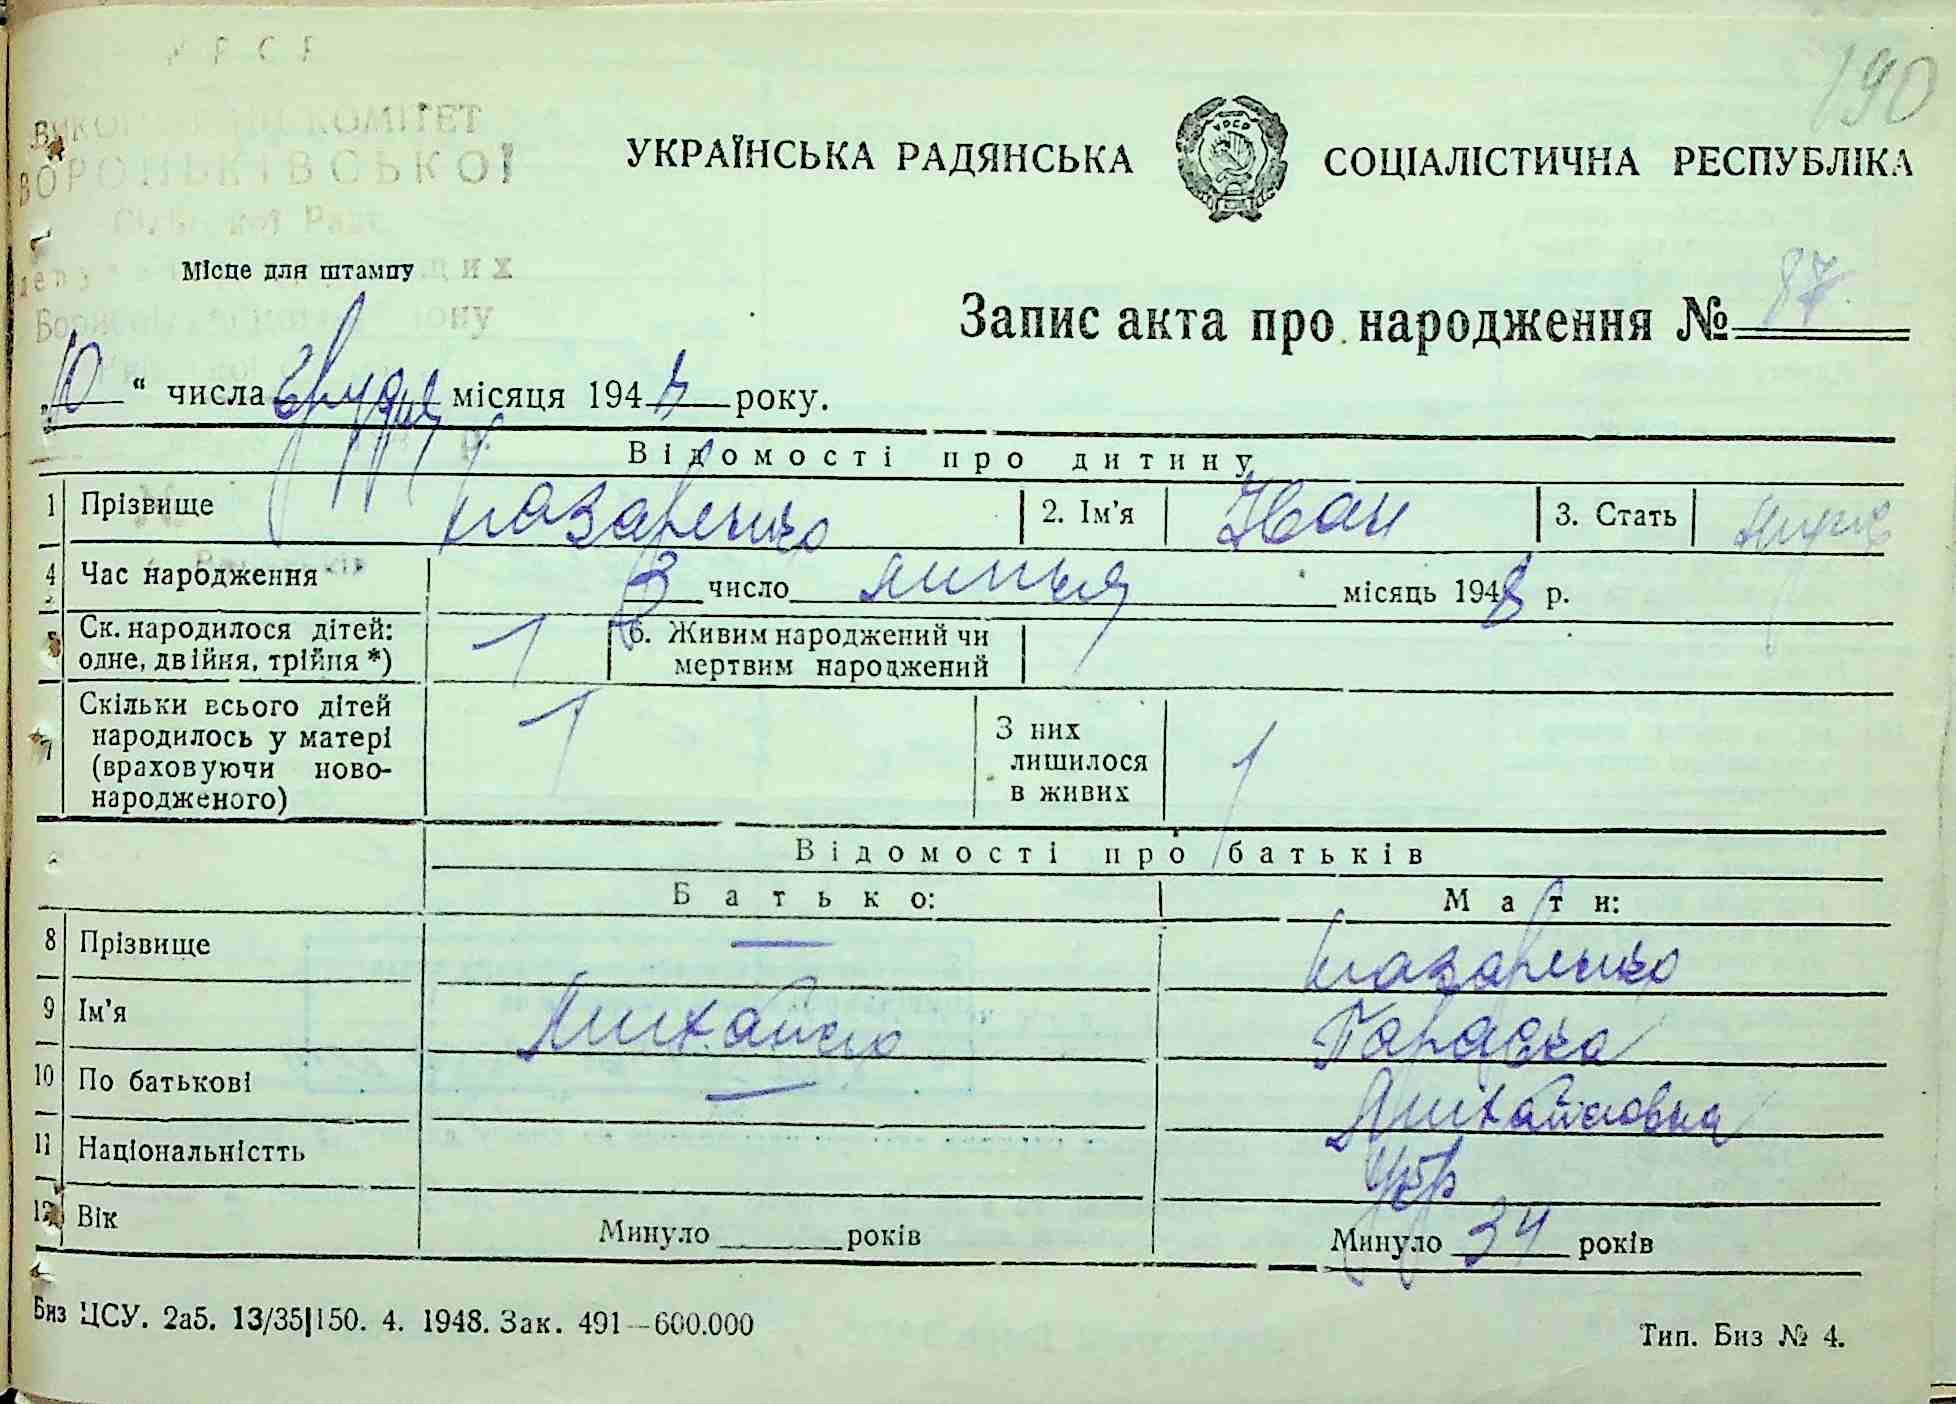 У Р С Р
190
ВИКОНАВЧИЙ КОМІТЕТ
ВОРОНЬКІВСЬКОЇ
Сільської Ради
УКРАЇНСЬКА РАДЯНСЬКА СОЦІАЛІСТИЧНА РЕСПУБЛІКА
Місце для штампу
Запис акта про народження № 87
„10“ числа Грудня місяця 194 року.
Відомості про дитину
1 Прізвище Назаренко 2. Ім'я Іван 3. Стать
4 Час народження 3 число липня місяць 1948 р.
5 Ск. народилося дітей: 1 6. Живим народжений чи
одне, двійня, трійня *) мертвим народжений
Скільки всього дітей
7 народилось у матері 1 З них 1
(враховуючи ново- лишилося
народженого) в живих
Відомості про батьків
Батько: Мати:
8 Прізвище — Назаренко
9 Ім'я Михайло Параска
10 По батькові — Михайловна
11 Національністть Укр
12 Вік Минуло ____ років Минуло 34 років
Биз ЦСУ. 2а5. 13/35|150. 4. 1948. Зак. 491—600.000
Тип. Биз № 4.